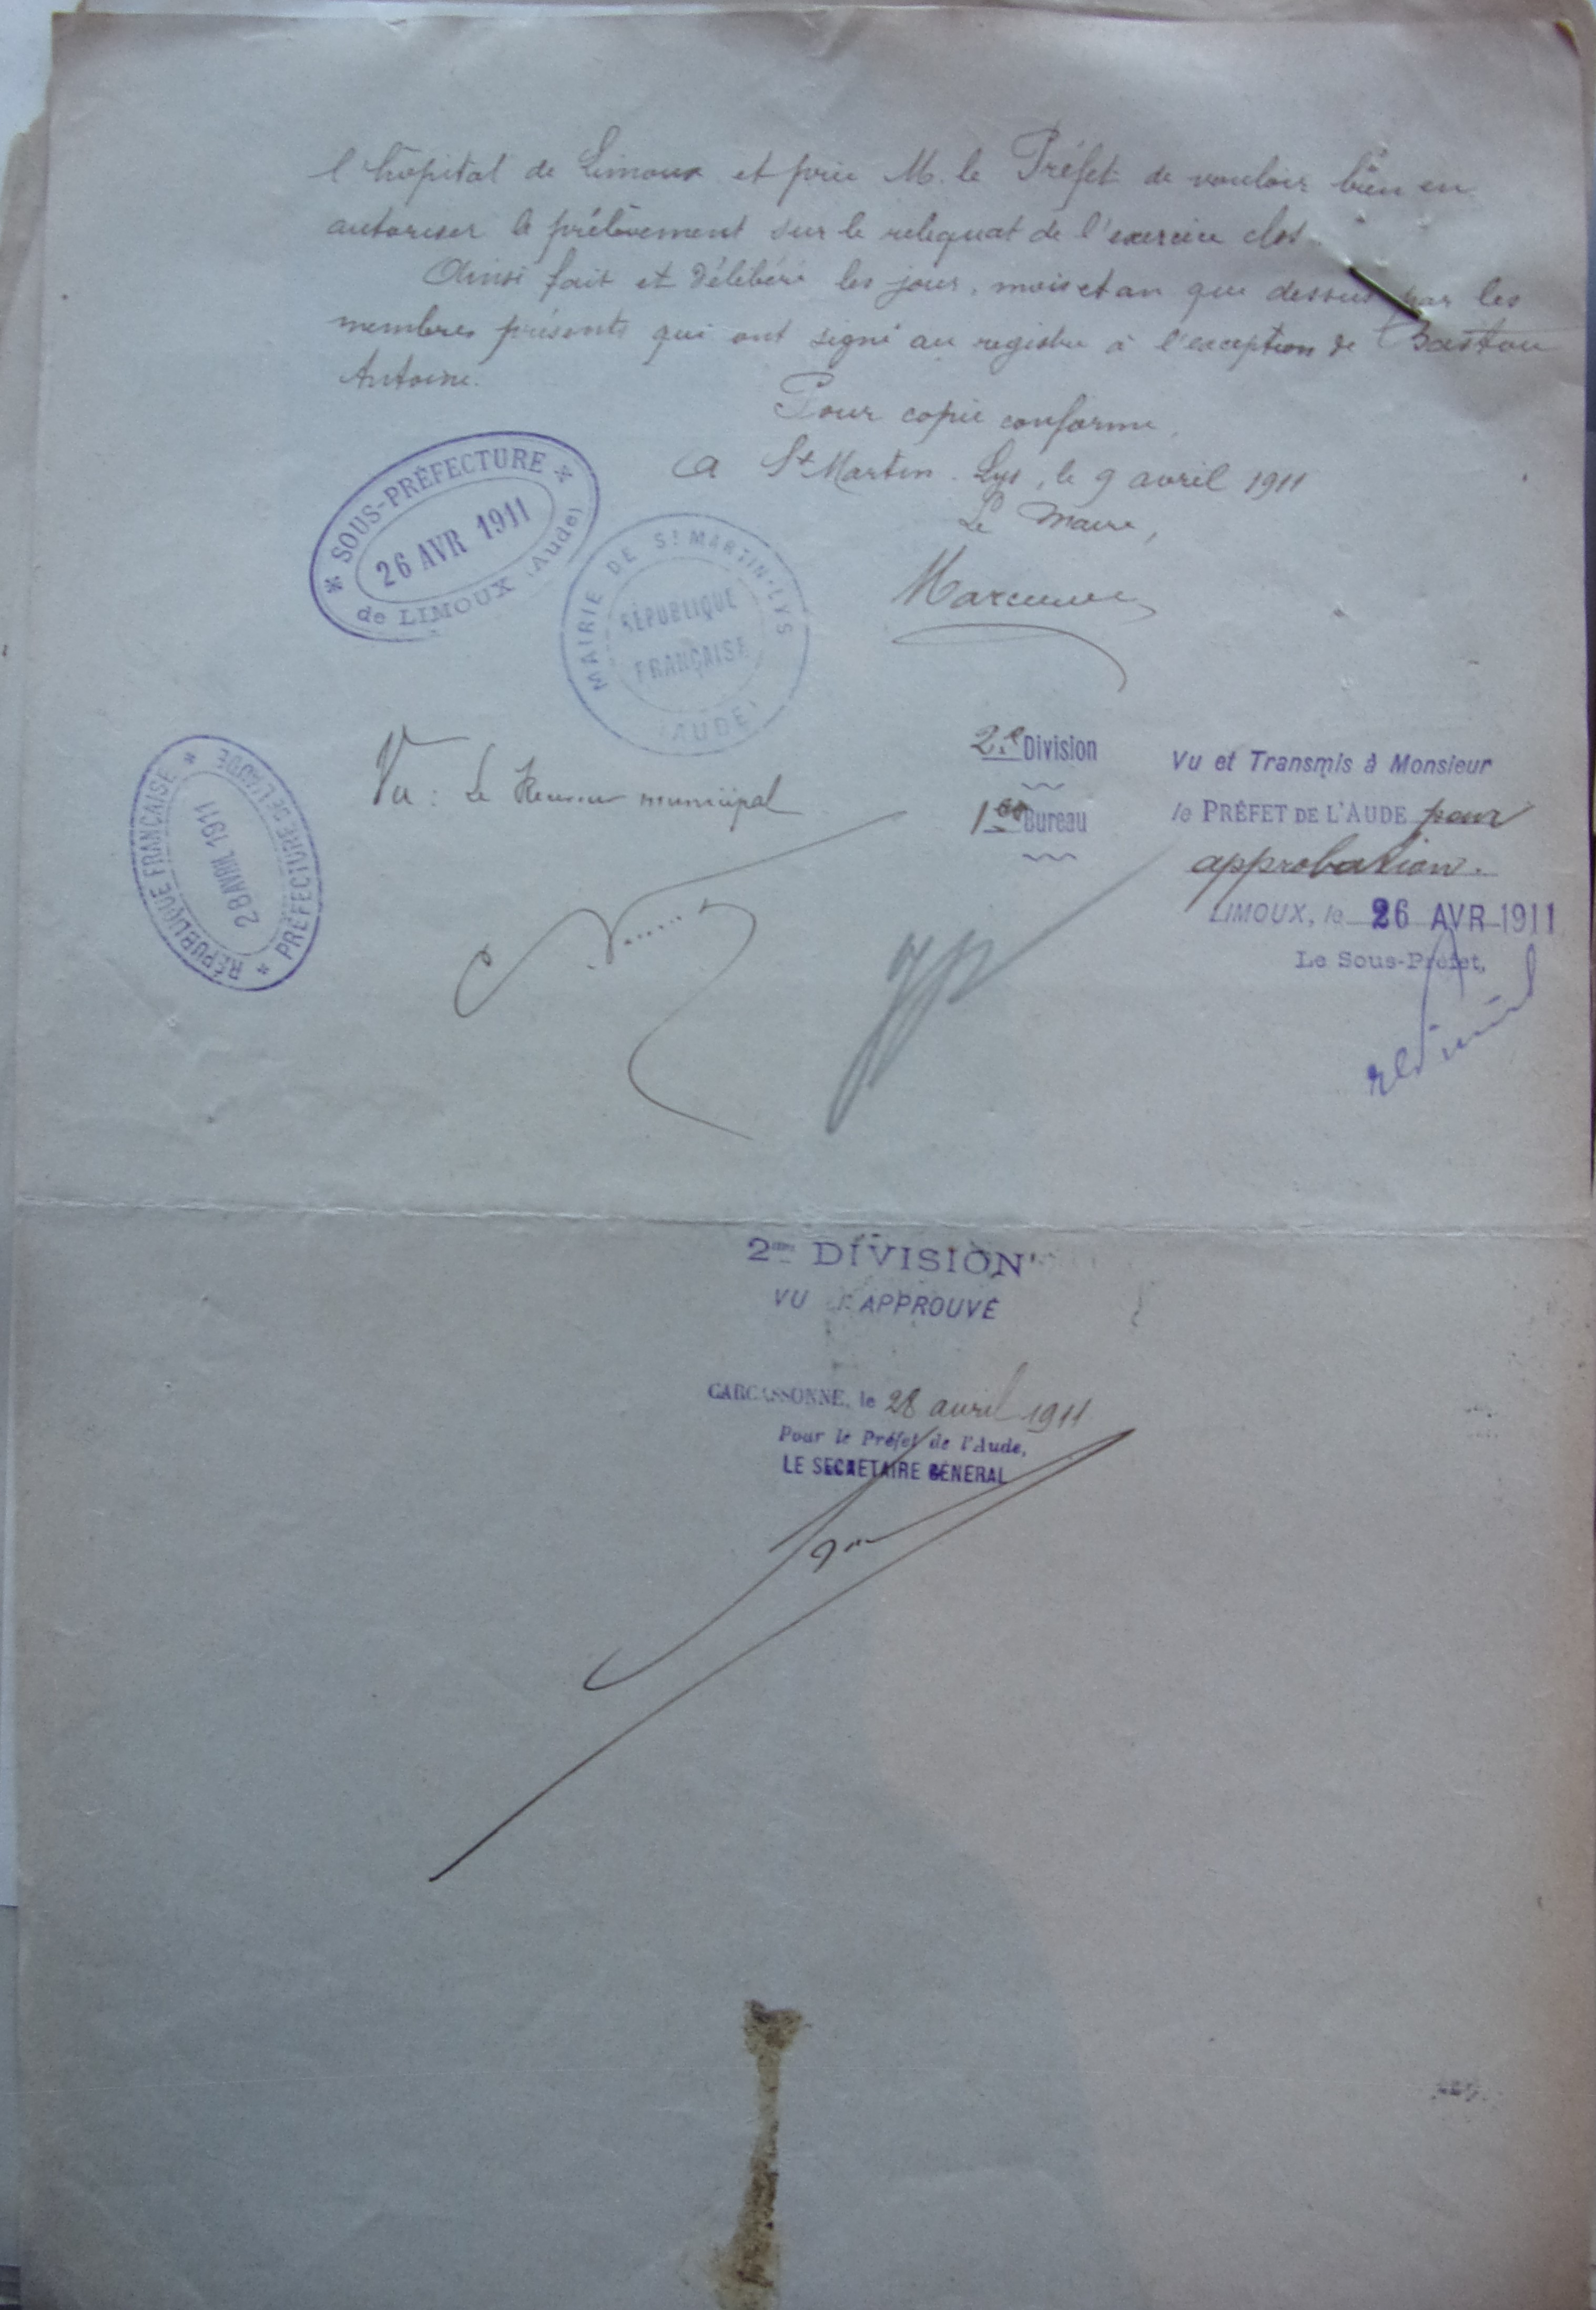 l'hôpital de Limoux et prie M. le Préfet de vouloir bien en
autoriser le prélèvement sur le reliquat de l'exercice clos.
Ainsi fait et délibéré les jour, mois et an que dessus par les
membres présents qui ont signé au registre à l'exception de
Antoine.
Pour copie conforme,
A St Martin-Lys, le 9 avril 1911
Le Maire,
* SOUS-PRÉFECTURE *
26 AVR 1911
de LIMOUX (Aude)
MAIRIE DE St MARTIN-LYS
RÉPUBLIQUE
FRANÇAISE
(AUDE)
RÉPUBLIQUE FRANÇAISE *
28 AVRIL 1911
* PRÉFECTURE DE L'AUDE
Vu : Le Receveur municipal
2e Division
1er Bureau
Vu et Transmis à Monsieur
le PRÉFET DE L'AUDE pour
approbation.
LIMOUX, le 26 AVR 1911
Le Sous-Préfet,
2me DIVISION
VU ET APPROUVÉ
CARCASSONNE, le 28 avril 1911
Pour le Préfet de l'Aude,
LE SECRETAIRE GÉNERAL